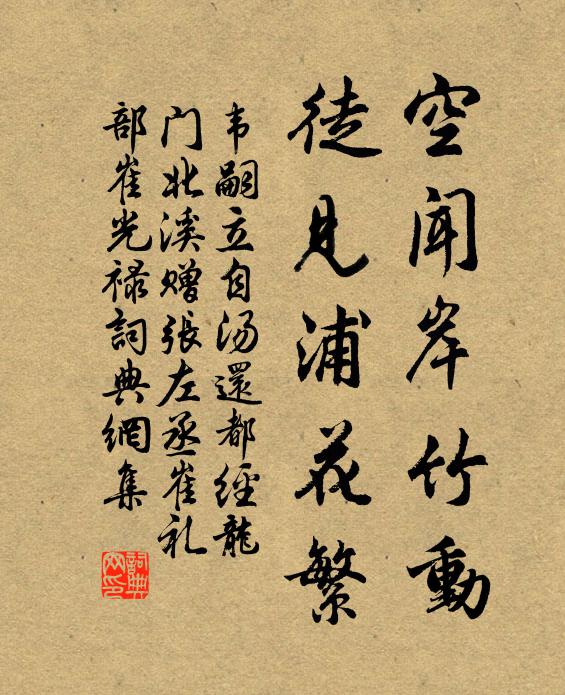 空闻岸竹動
徒見浦花繁
韦嗣立自汤還都經龍
门北溪赠張左丞崔礼
部崔光禄詞典網集
詞典网印